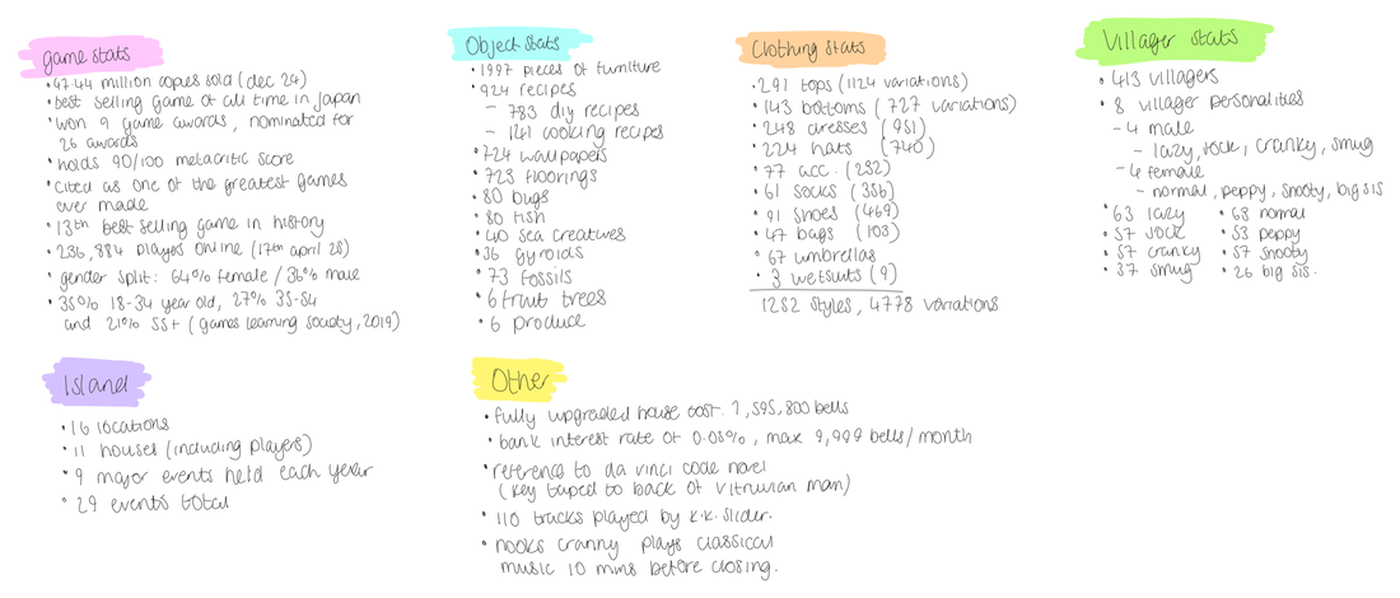 game stats
• 47.44 million copies sold (dec 24)
• best selling game of all time in Japan
• won 9 game awards, nominated for
26 awards
• holds 90/100 metacritic score
• cited as one of the greatest games
ever made
• 13th best selling game in history
• 236,884 players online (17th april 25)
• gender split: 64% female / 36% male
• 35% 18-34 year old, 27% 35-54
and 21% 55+ (games learning society, 2019)
Object stats
• 1997 pieces of furniture
• 924 recipes
- 783 diy recipes
- 141 cooking recipes
• 724 wallpapers
• 723 floorings
• 80 bugs
• 80 fish
• 40 sea creatures
• 36 gyroids
• 73 fossils
• 6 fruit trees
• 6 produce
Clothing stats
• 291 tops (1124 variations)
• 143 bottoms (727 variations)
• 248 dresses (951)
• 224 hats (740)
• 77 acc. (232)
• 61 socks (356)
• 91 shoes (469)
• 47 bags (103)
• 67 umbrellas
• 3 wetsuits (9)
1252 styles, 4778 variations
Villager stats
• 413 villagers
• 8 villager personalities
- 4 male
- lazy, jock, cranky, smug
- 4 female
- normal, peppy, snooty, big sis
• 63 lazy
• 57 jock
• 57 cranky
• 37 smug
• 63 normal
• 53 peppy
• 57 snooty
• 26 big sis.
Island
• 16 locations
• 11 houses (including players)
• 9 major events held each year
• 29 events total
Other
• fully upgraded house cost. 7,595,800 bells
• bank interest rate of 0.05%, max 9,999 bells/month
• reference to da vinci code novel
(key taped to back of vitruvian man)
• 110 tracks played by k.k. slider.
• nooks cranny plays classical
music 10 mins before closing.